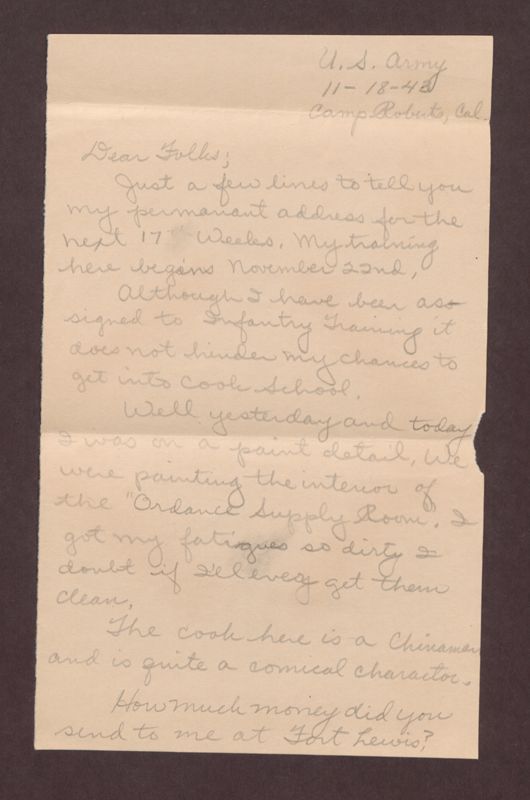 U. S. Army
11-18-43
Camp Roberts, Cal.
Dear Folks;
Just a few lines to tell you
my permanant address for the
next 17 Weeks. My training
here begins November 22nd,
Although I have been as-
signed to Infantry Training it
does not hinder my chances to
get into Cook School.
Well yesterday and today
I was on a paint detail, We
were painting the interior of
the "Ordance Supply Room. I
got my fatigues so dirty I
doubt if I'll ever get them
clean.
The cook here is a Chinamen
and is quite a comical charactor.
How much money did you
send to me at Fort Lewis?